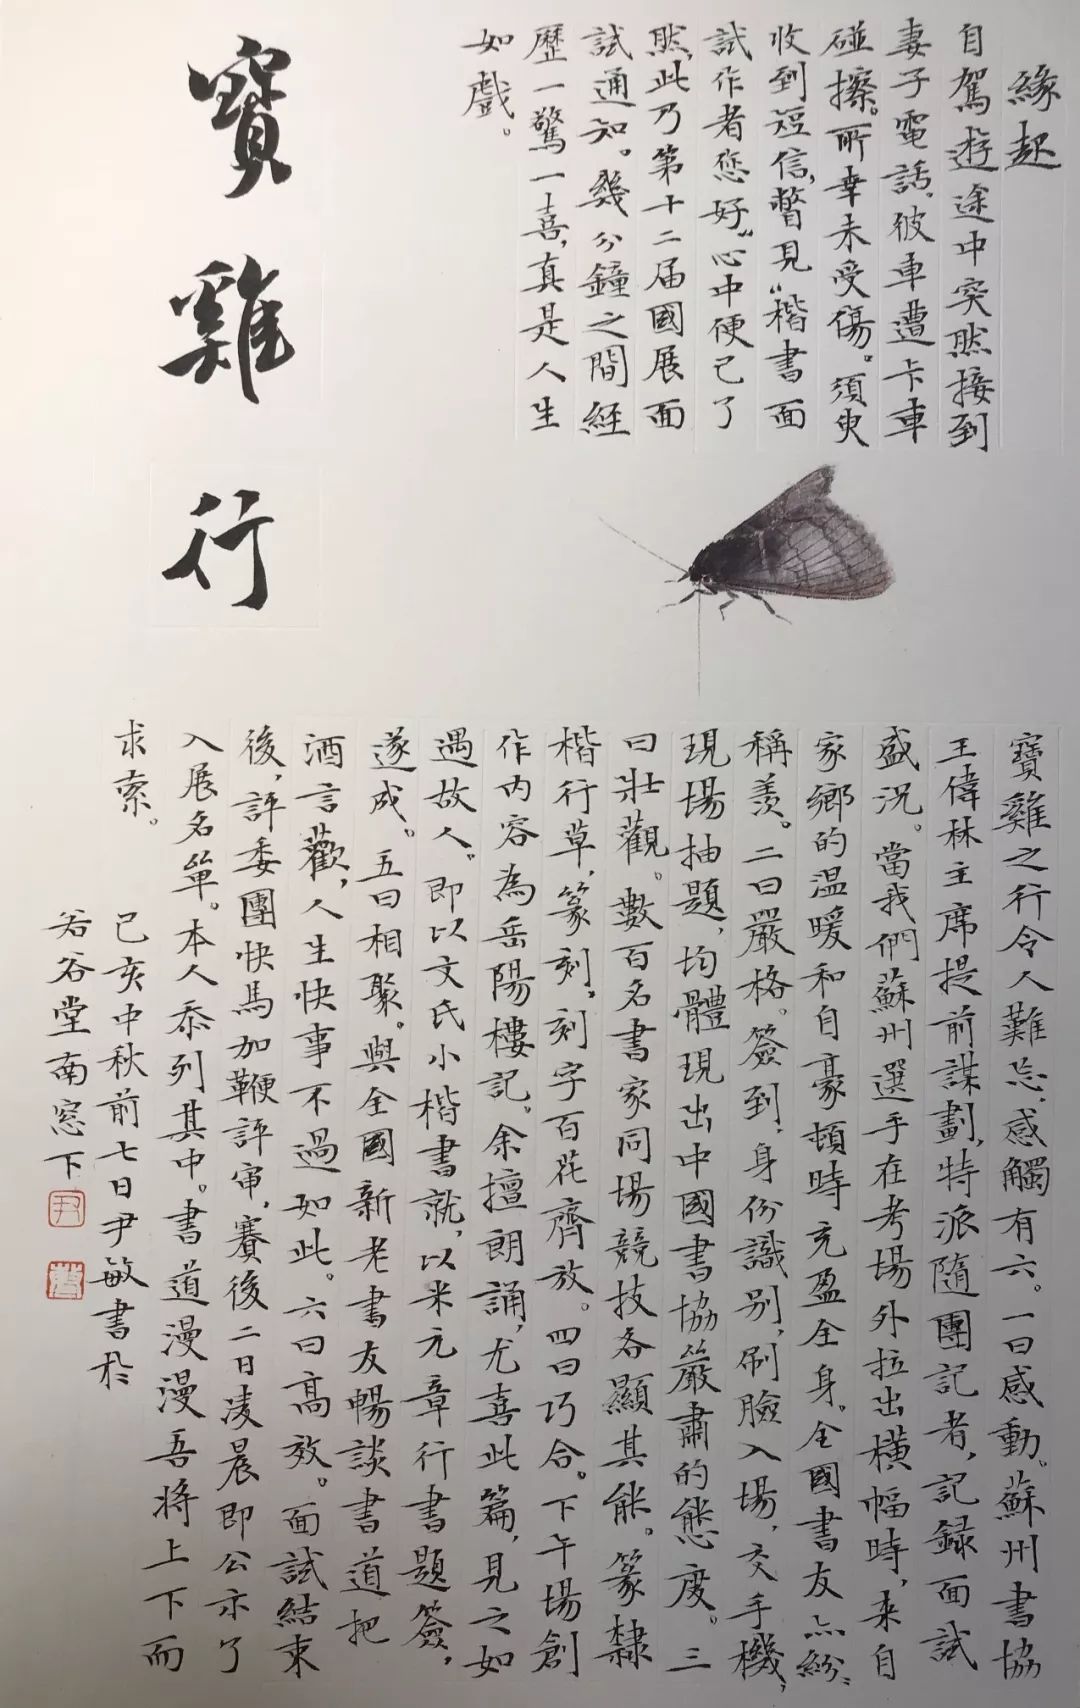 緣起
自駕遊途中突然接到
妻子電話，彼車遭卡車
碰擦。所幸未受傷。須臾
收到短信，瞥見“楷書面
試作者您好”心中便已了
然，此乃第十二届國展面
試通知。幾分鐘之間經
歷一驚一喜，真是人生
如戲。
寶雞行
寶雞之行令人難忘，感觸有六。一曰感動。蘇州書協
王偉林主席提前謀劃，特派隨團記者，記録面試
盛況。當我們蘇州選手在考場外拉出橫幅時，来自
家鄉的温暖和自豪頓時充盈全身。全國書友亦紛〻
稱羨。二曰嚴格。簽到，身份識别，刷臉入場，交手機，
現場抽題，均體現出中國書協嚴肅的態度。三
曰壯觀。數百名書家同場競技各顯其能。篆隸
楷行草，篆刻，刻字百花齊放。四曰巧合。下午場創
作内容為岳陽樓記。余擅朗誦，尤喜此篇，見之如
遇故人。即以文氏小楷書就，以米元章行書題簽，
遂成。五曰相聚。與全國新老書友暢談書道把
酒言歡，人生快事不過如此。六曰高效。面試結束
後，評委團快馬加鞭評审，賽後二日凌晨即公示了
入展名單。本人忝列其中。書道漫漫吾將上下而
求索。
己亥中秋前七日尹敏書於
若谷堂南窓下
尹